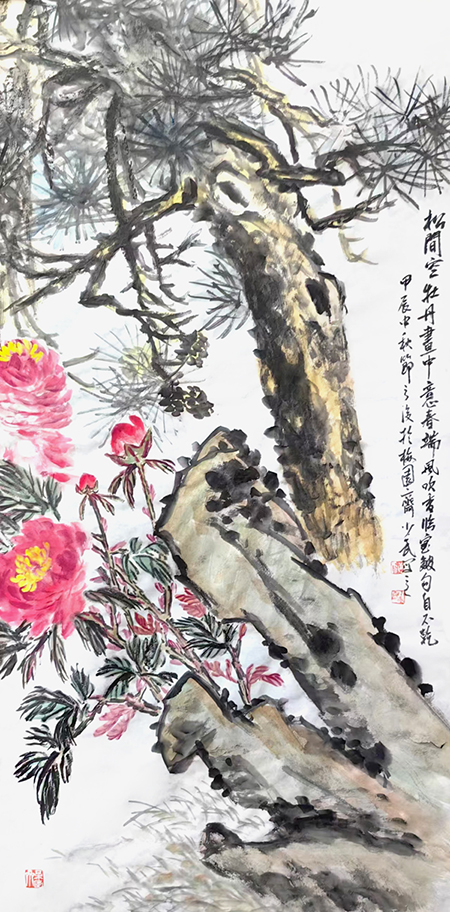 松間空牡丹畫中意春端風吹香臨窗皺句自不乾
甲辰中秋節之後於梅園齋少武寫之